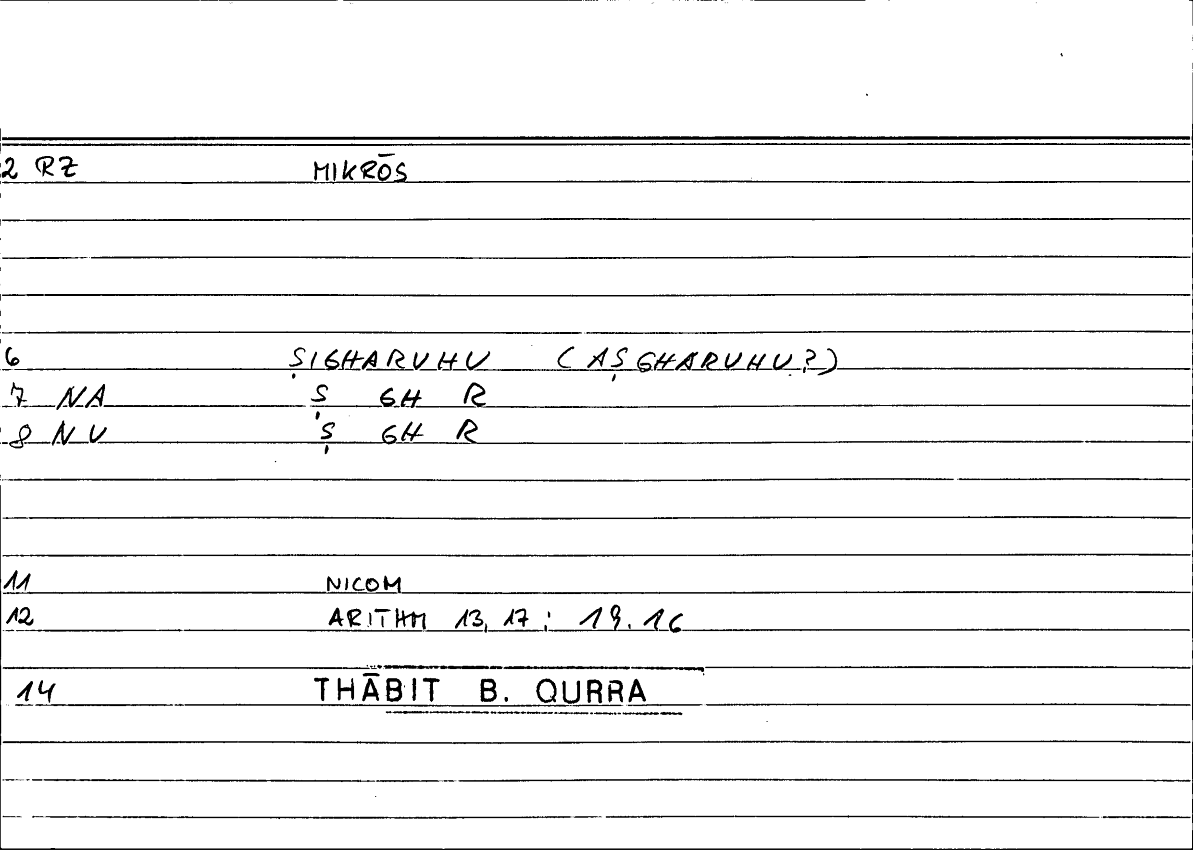 2 RZ MIKRŌS
6 ṢIGHARUHU (AṢGHARUHU?)
7 NA Ṣ GH R
8 NU Ṣ GH R
11 NICOM
12 ARITHM 13,17; 19.16
14 THĀBIT B. QURRA